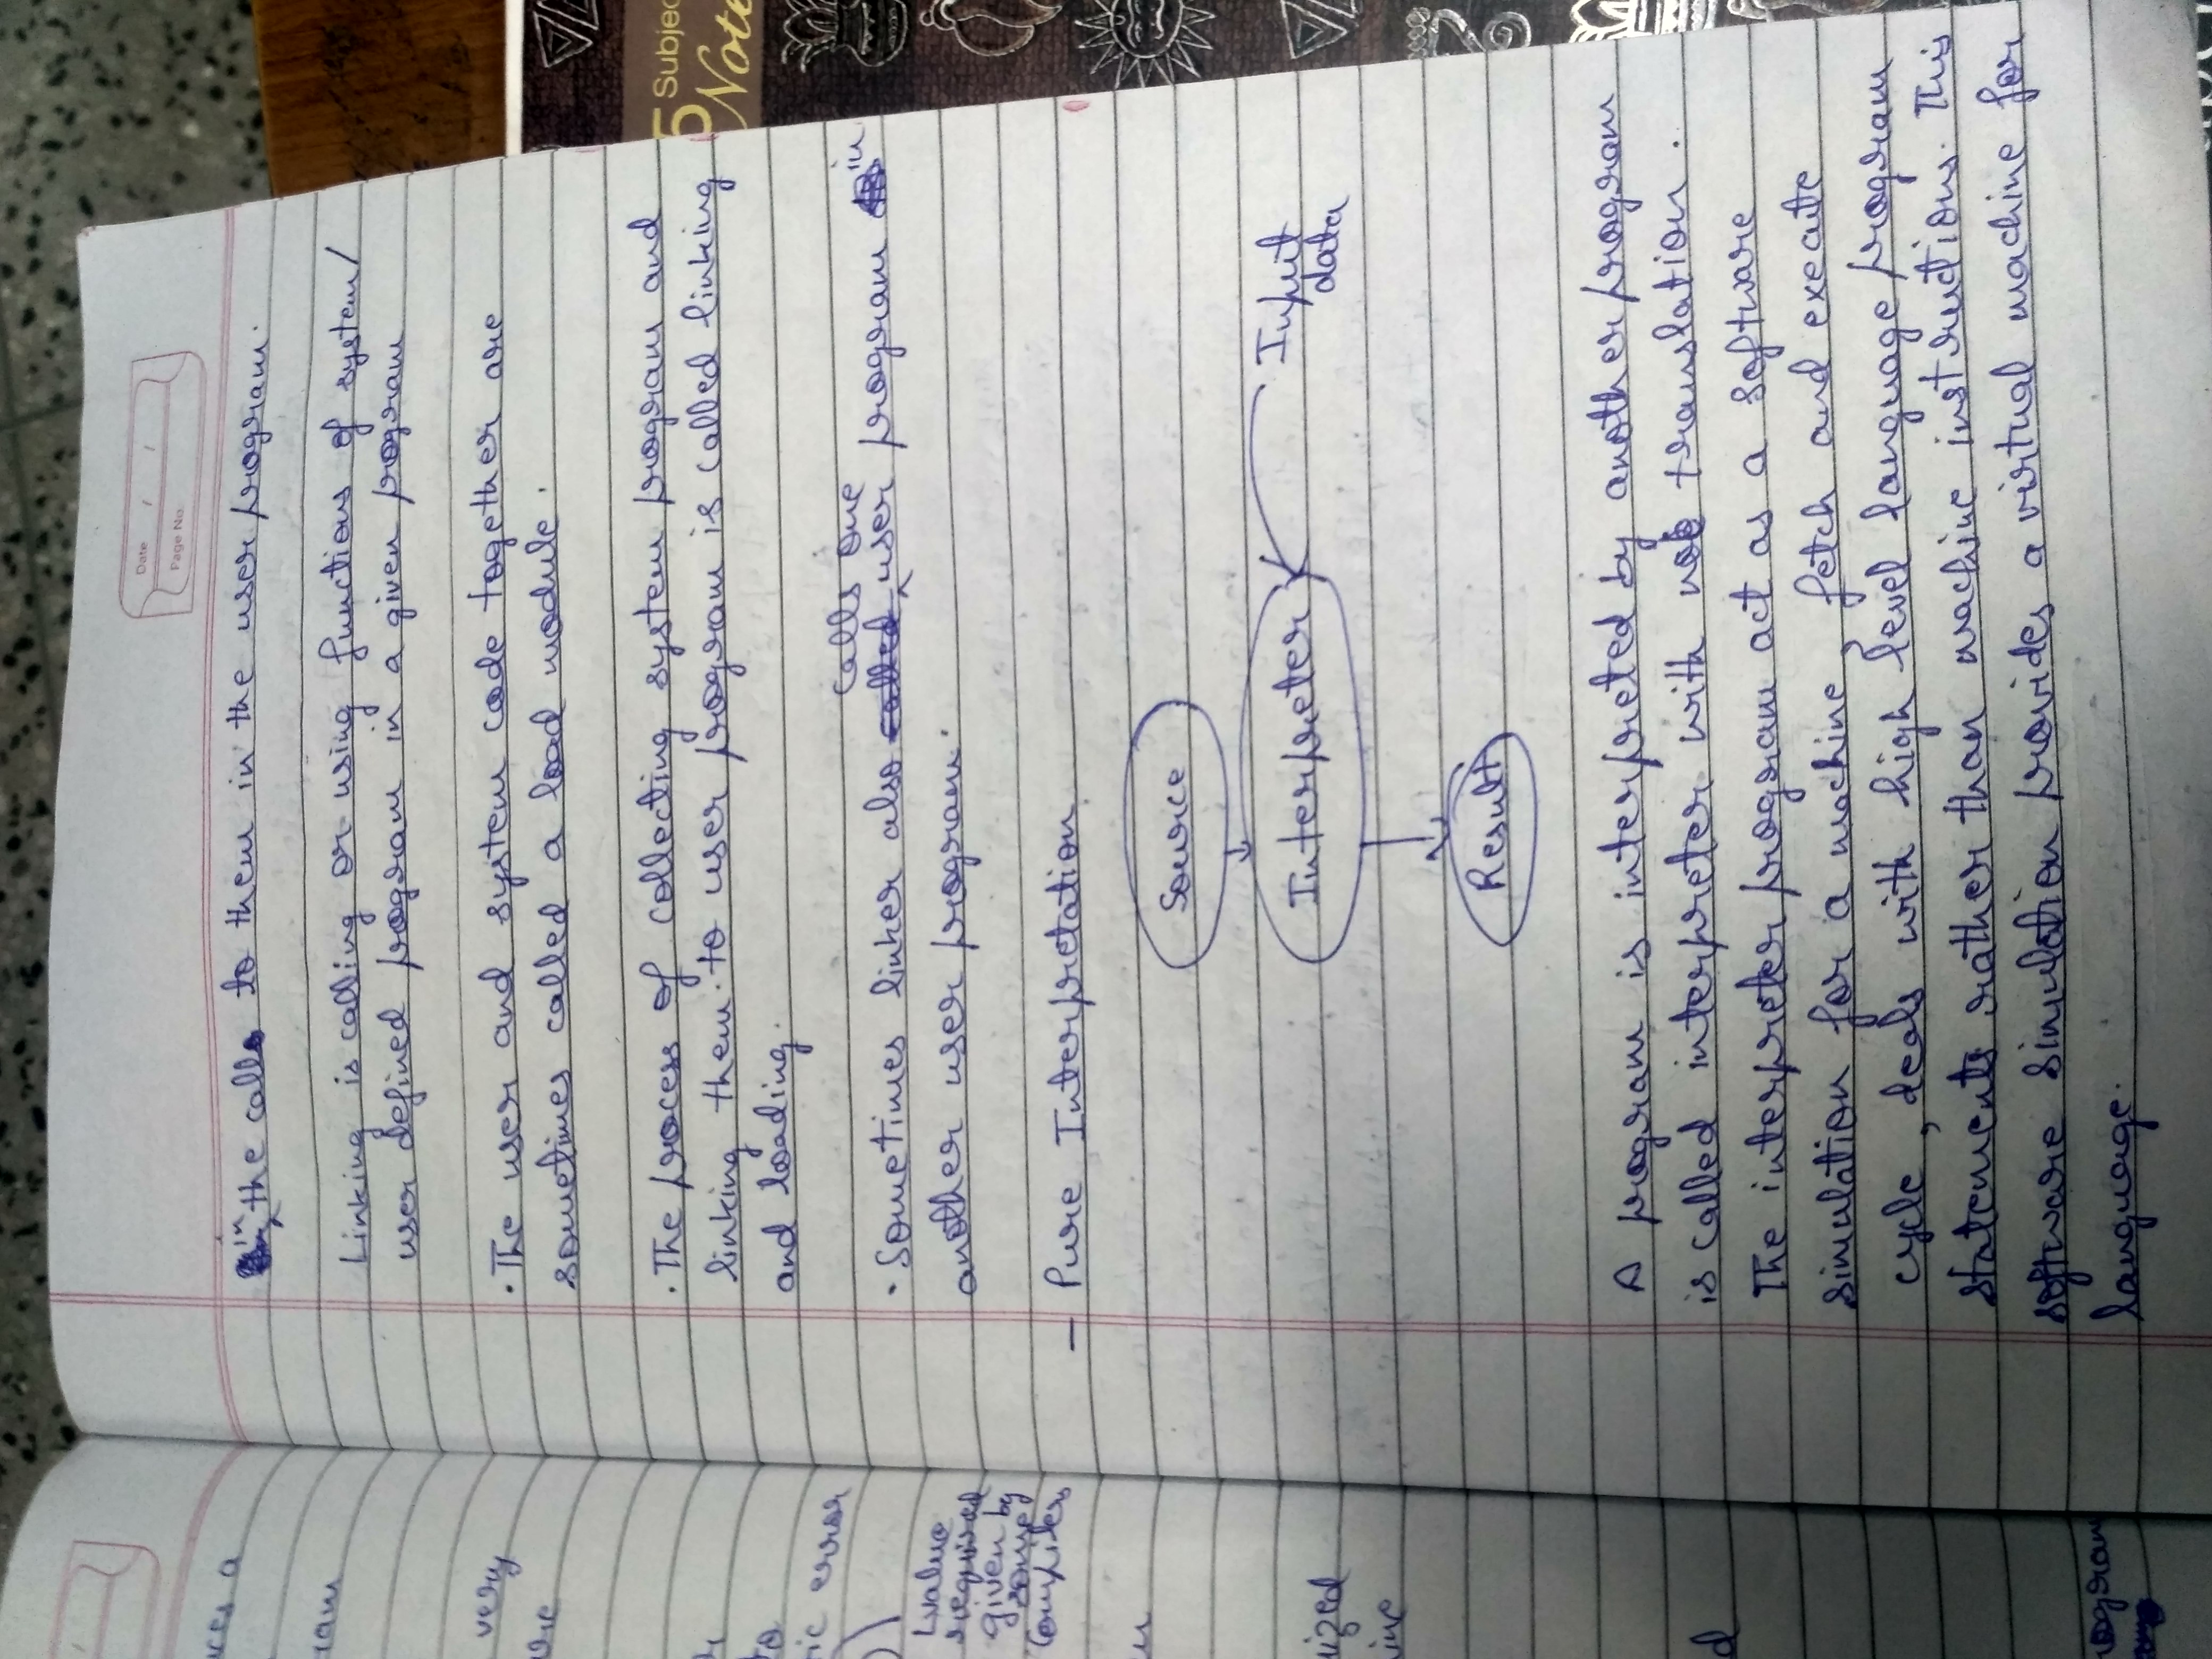 Date / /
Page No.
"in" the calls to them in the user program.
Linking is calling or using functions of system/
user defined program in a given program
· The user and system code together are
sometimes called a load module.
· The process of collecting system program and
linking them to user program is called linking
and loading.
calls one
· Sometimes linker also called user program in
another user program.
— Pure Interpretation
Source
Interpreter
Input
data
Result
A program is interpreted by another program
is called interpreter with no translation.
The interpreter program act as a software
simulation for a machine, fetch and execute
cycle, deals with high level language program
statements rather than machine instructions. This
software simulation provides a virtual machine for
language.
5 Subjec
Note
very
ic error
Lvalue
required
given by
some
compiler